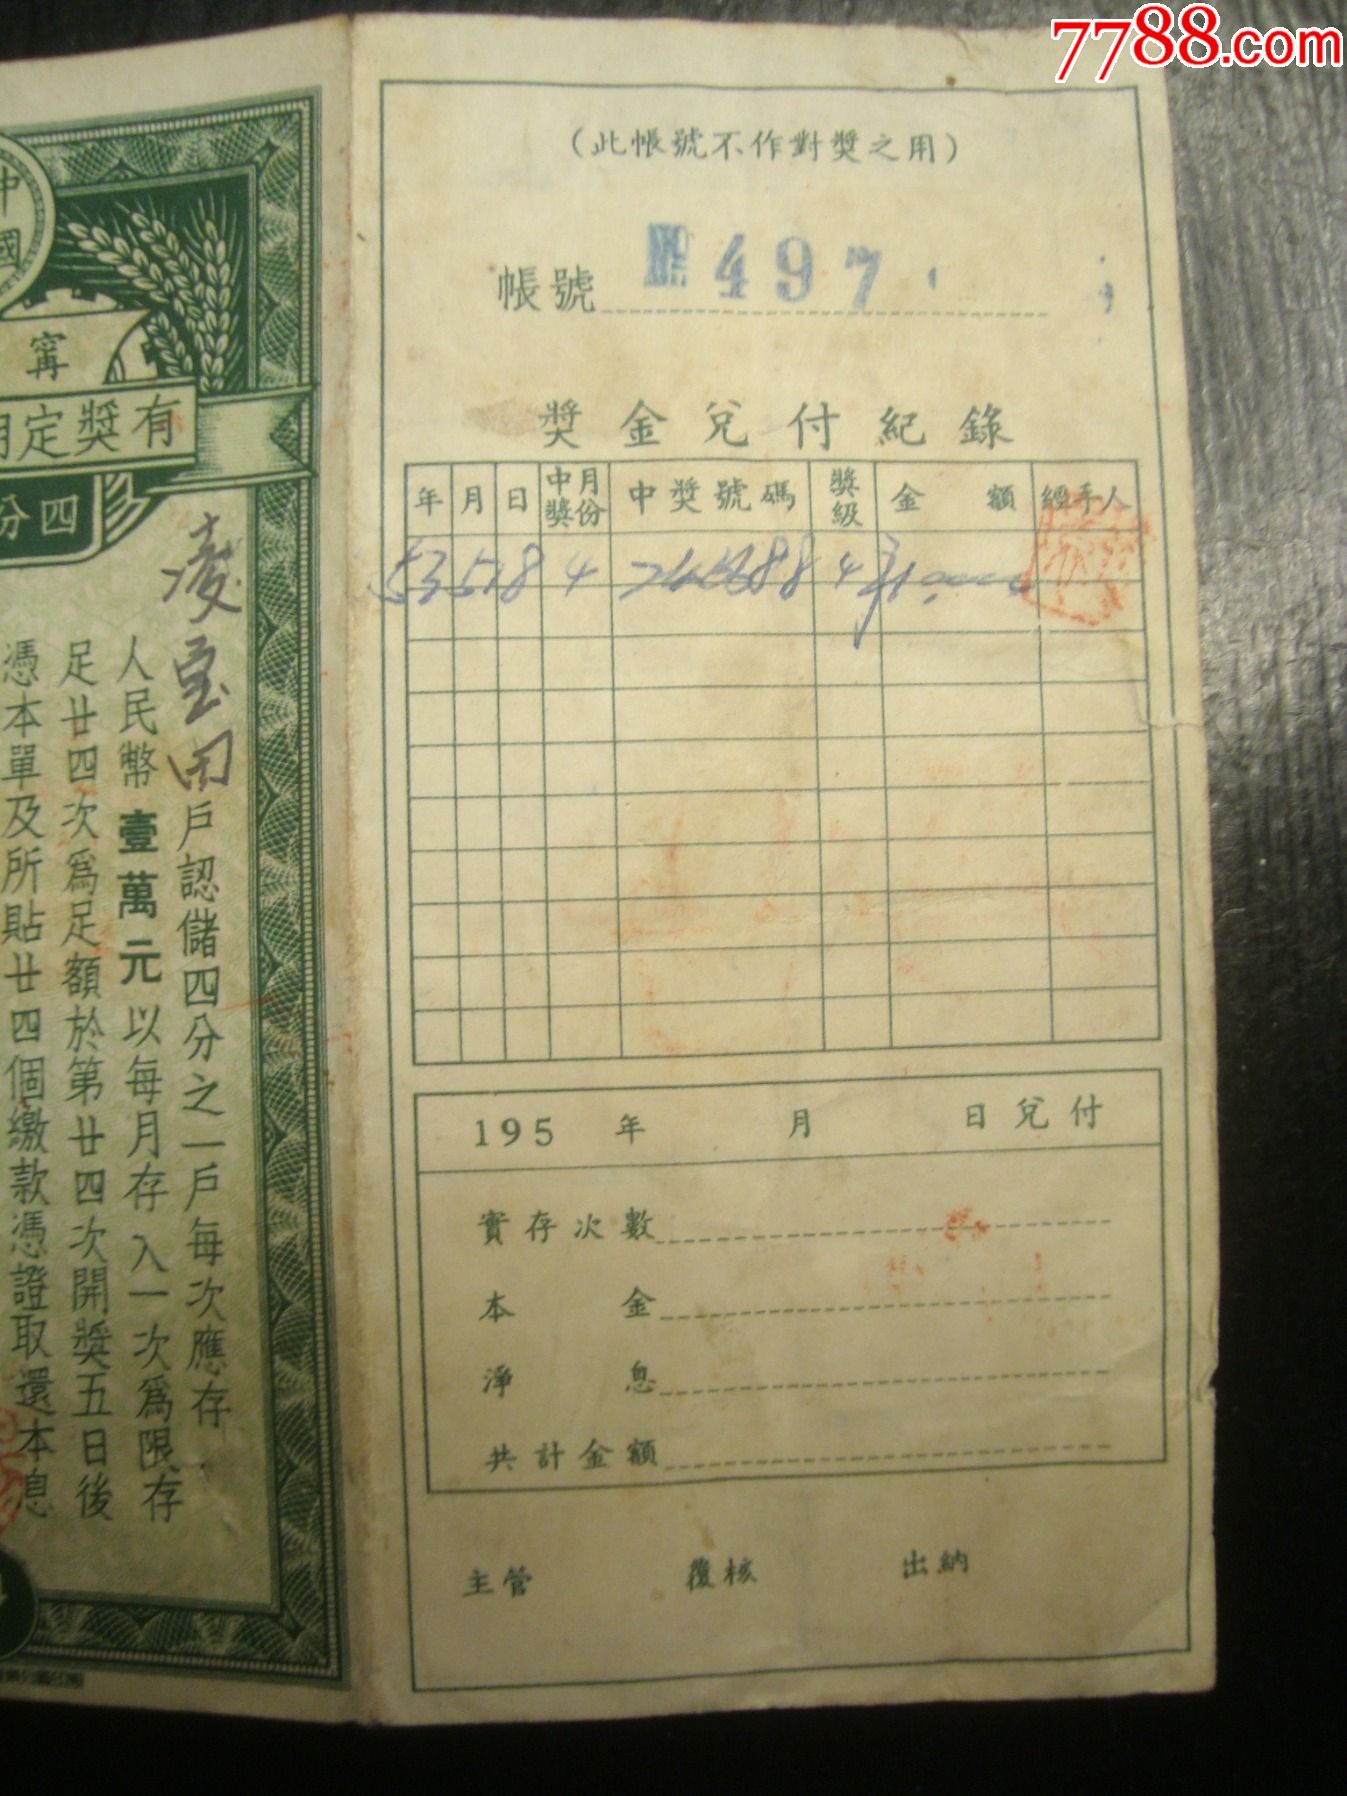 7788.com
(此帳號不作對獎之用)
帳號 No 497
獎金兌付紀錄
年 月 日 中獎月份 中獎號碼 獎級 金額 經手人
53 5 18 4 4
195 年 月 日兌付
實存次數
本金
淨息
共計金額
主管 覆核 出納
中國
甯
有獎定期
四分
凌宝田戶認儲四分之一戶每次應存
人民幣壹萬元以每月存入一次為限存
足廿四次為足額於第廿四次開獎五日後
憑本單及所貼廿四個繳款憑證取還本息